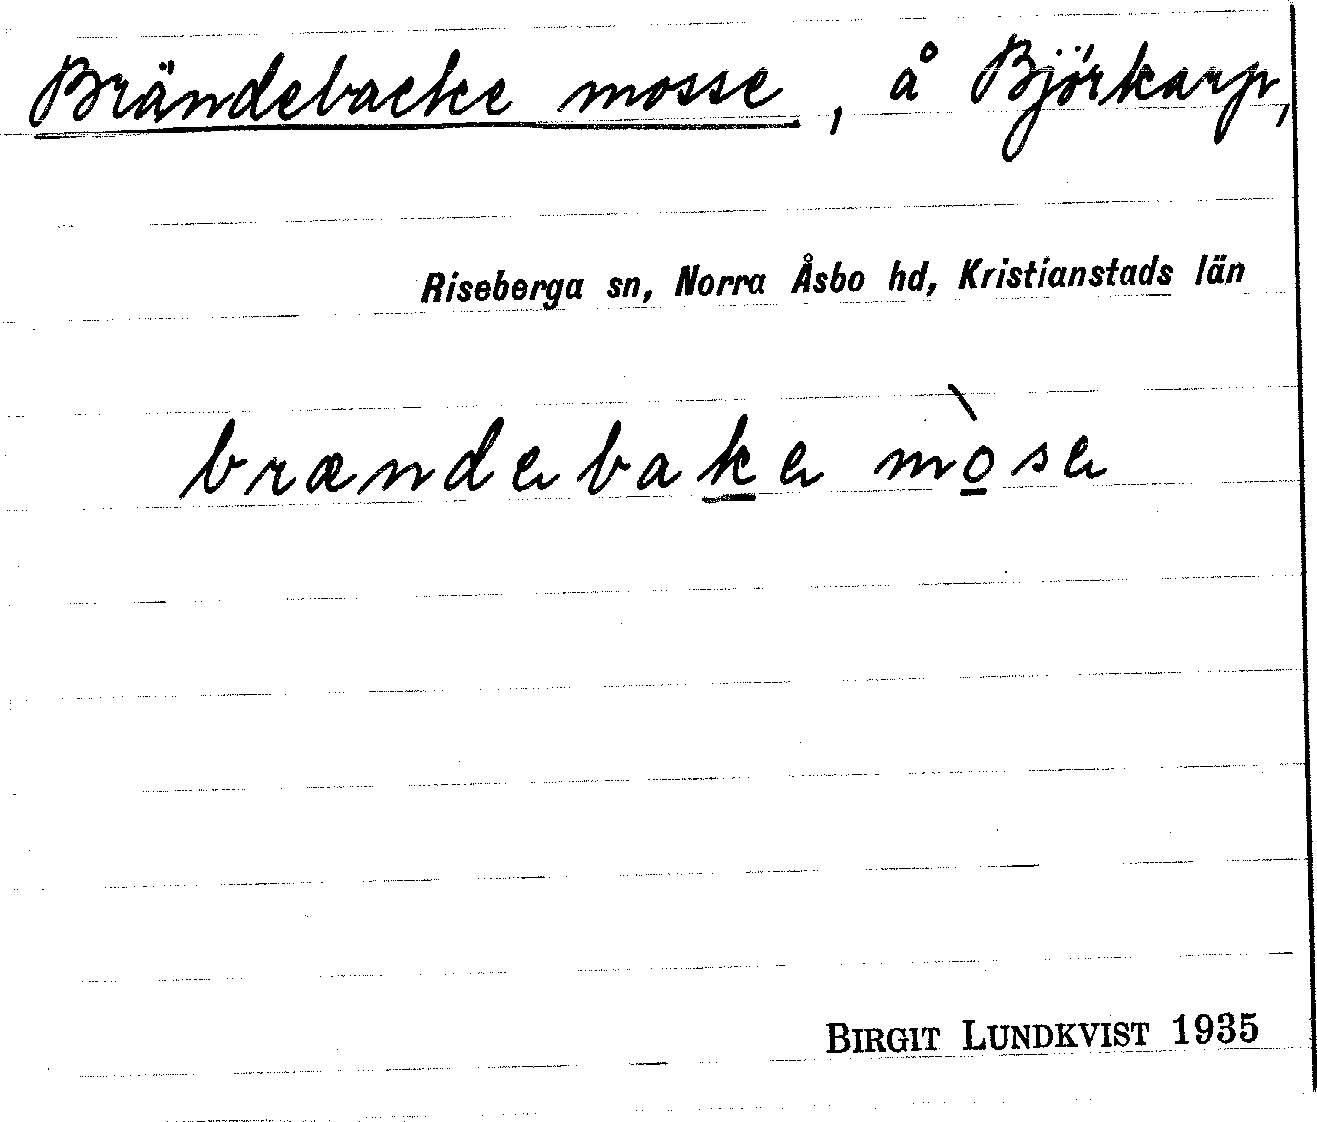 Brändebacke mosse, å Björkarp,
Riseberga sn, Norra Åsbo hd, Kristianstads län
brændebake mòse
BIRGIT LUNDKVIST 1935